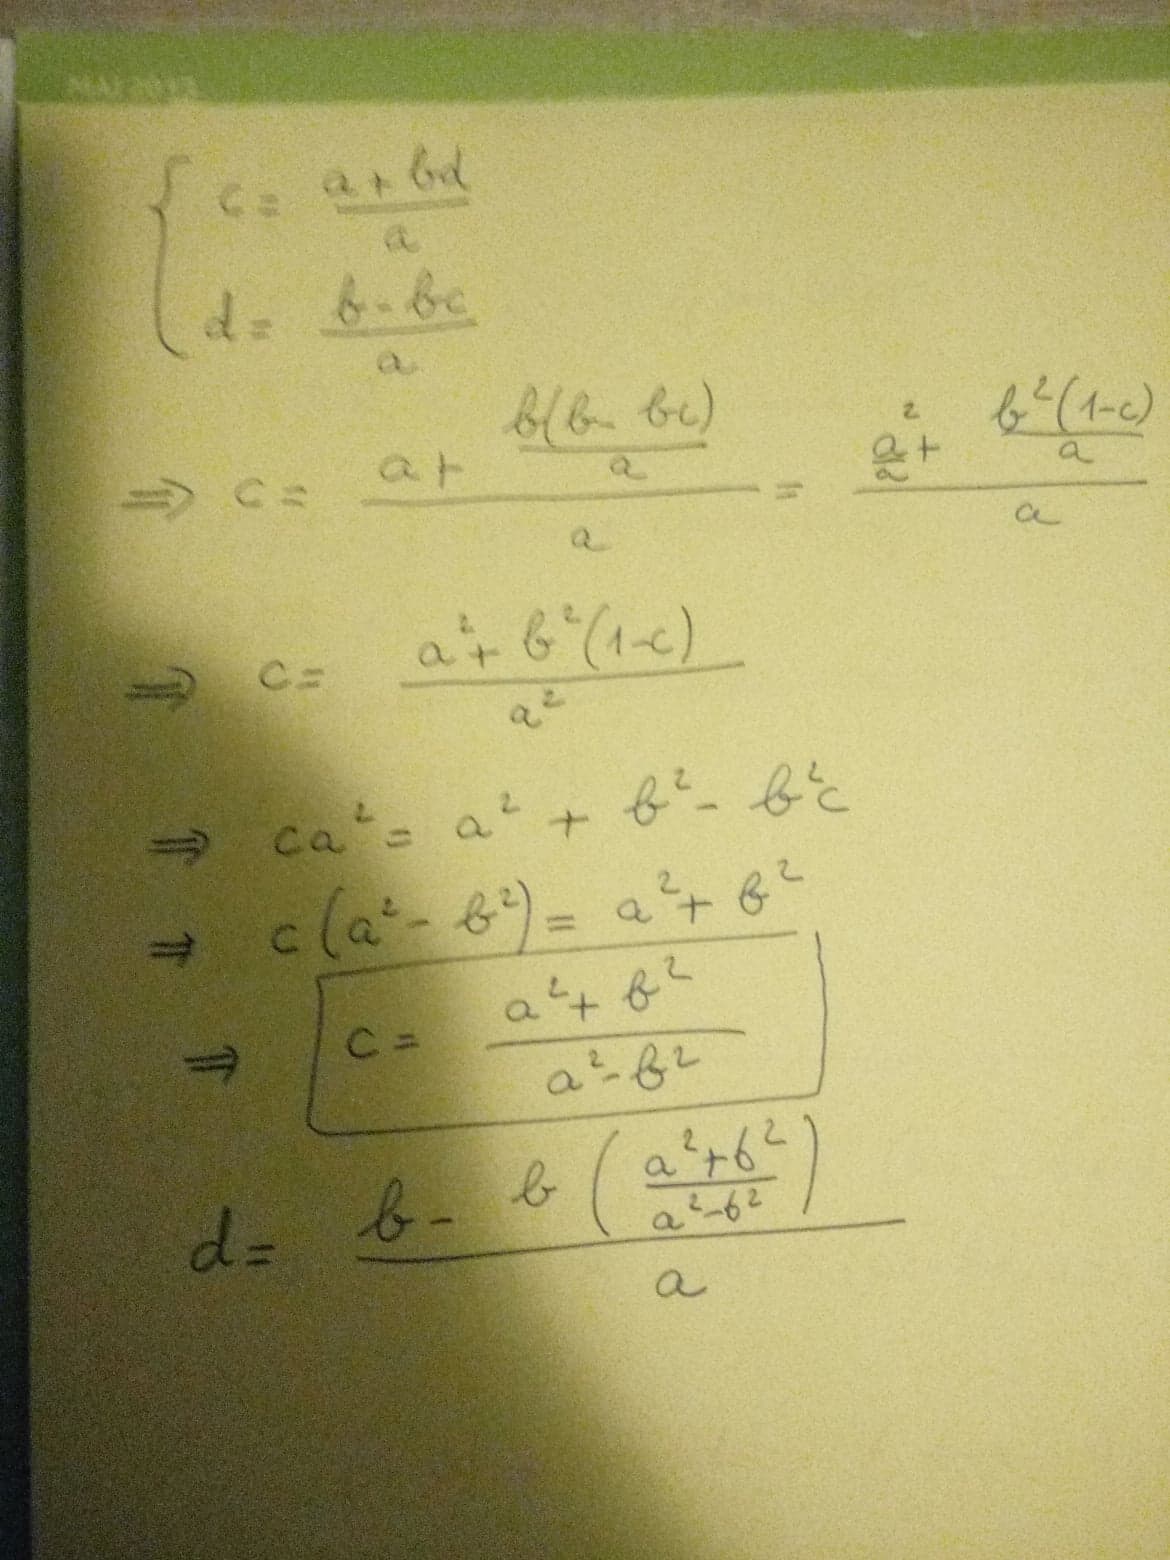 MAI 2012
{ c = (a + bd)/a
d = (b - bc)/a
⇒ c = (a + b(b - bc)/a)/a = (a²/a + b²(1-c)/a)/a
⇒ c = (a² + b²(1-c))/a²
⇒ ca² = a² + b² - b²c
⇒ c(a² - b²) = a² + b²
⇒ c = (a² + b²)/(a² - b²)
d = (b - b((a²+b²)/(a²-b²)))/a